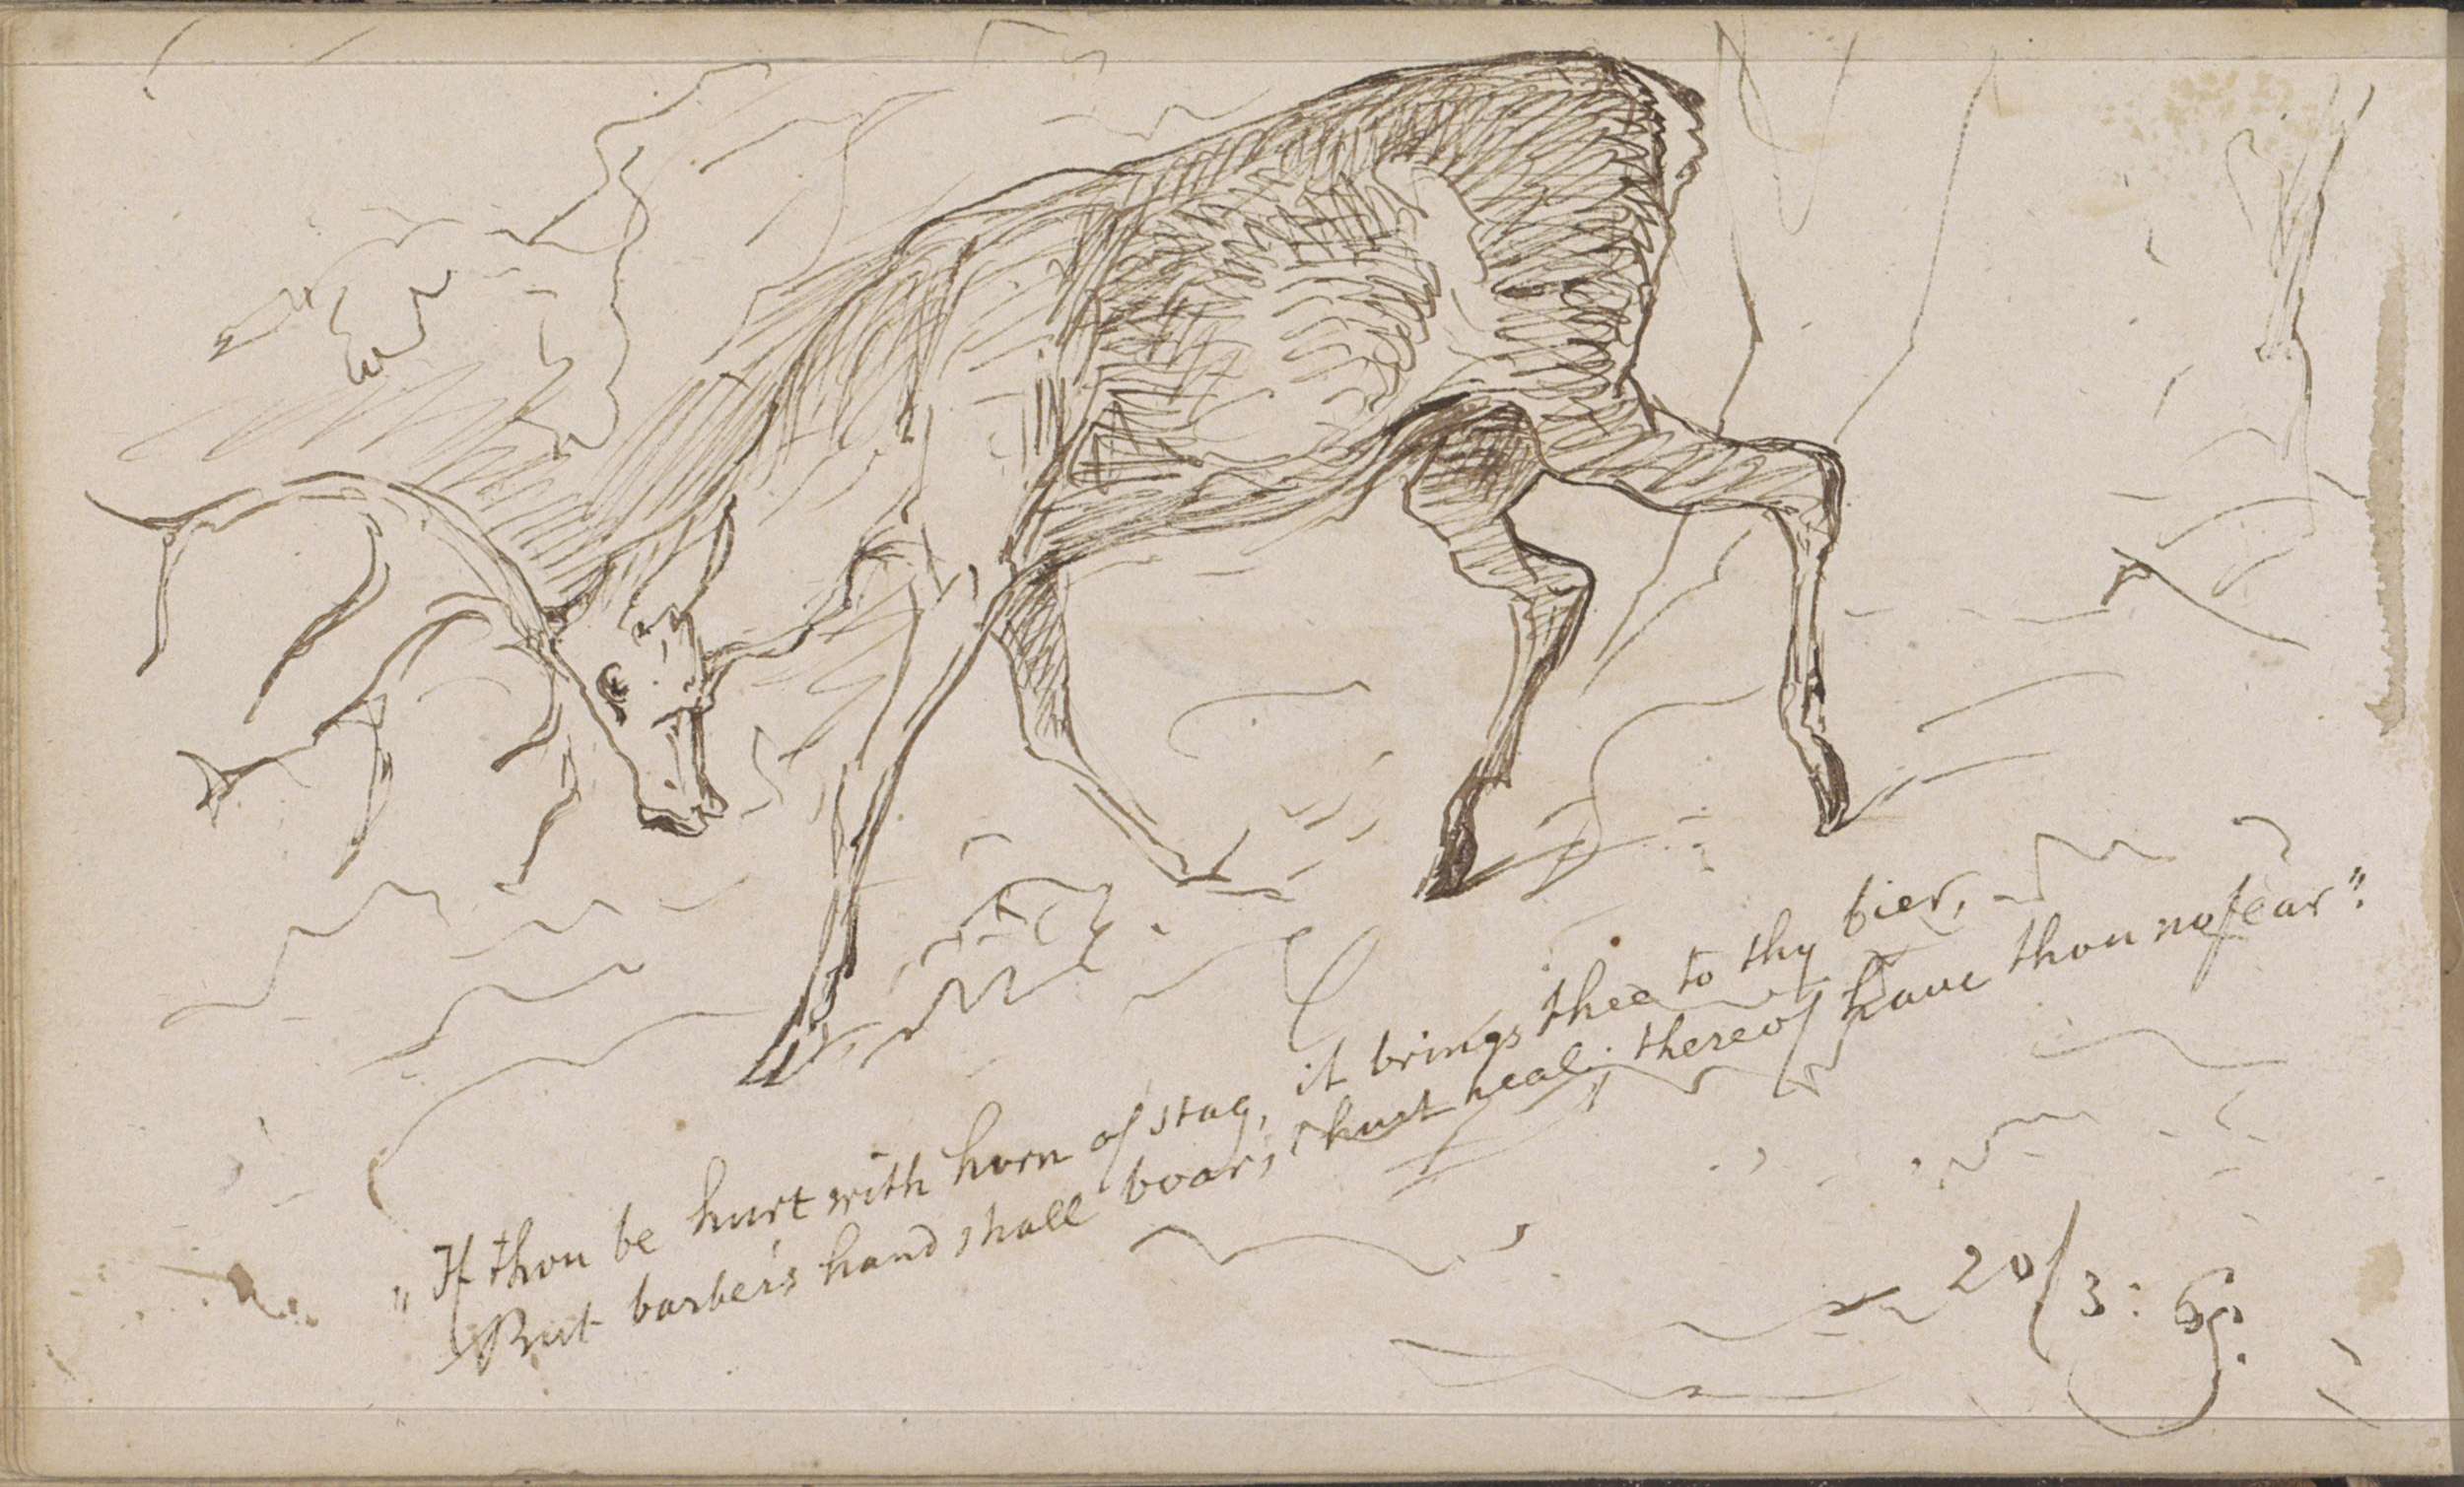 „If thou be hurt with horn of stag, it brings thee to thy bier,
But barber's hand shall boars' hurt heal; thereof have thou no fear".
20/3: 69.